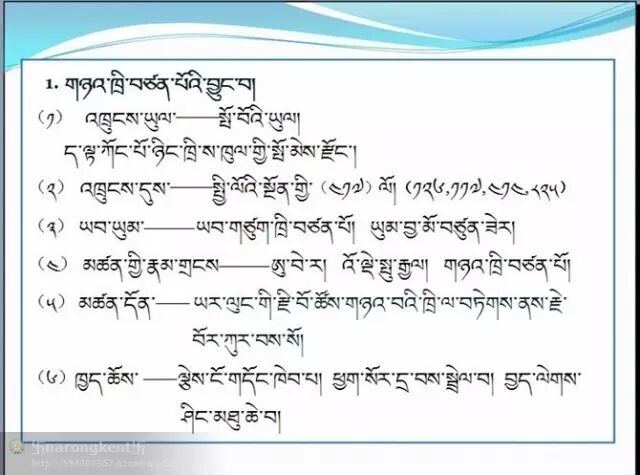 1. གཉའ་ཁྲི་བཙན་པོའི་བྱུང་བ།
(༡) འཁྲུངས་ཡུལ་——སྤོ་བོའི་ཡུལ།
ད་ལྟ་ཀོང་པོ་ཉིང་ཁྲི་ས་ཁུལ་གྱི་སྤོ་མེས་རྫོང་།
(༢) འཁྲུངས་དུས་——སྤྱི་ལོའི་སྔོན་གྱི་ (༤༡༧) ལོ། (༡༢༦,༡༡༧,༤༡༤,༨༢༥)
(༣) ཡབ་ཡུམ་——ཡབ་གཙུག་ཁྲི་བཙན་པོ། ཡུམ་བྱ་མོ་བཙུན་ཟེར།
(༤) མཚན་གྱི་རྣམ་གྲངས——ཨུ་བེ་ར། འོ་ལྡེ་སྤུ་རྒྱལ། གཉའ་ཁྲི་བཙན་པོ།
(༥) མཚན་དོན་——ཡར་ལུང་གི་རྫི་བོ་ཚོས་གཉའ་བའི་ཁྲི་ལ་བཏེགས་ནས་རྗེ་
བོར་ཀུར་བས་སོ།
(༦) ཁྱད་ཆོས་——ལྕེས་ངོ་གདོང་ཁེབ་པ། ཕྱག་སོར་དྲ་བས་སྦྲེལ་བ། བྱད་ལེགས་
ཤིང་མཐུ་ཆེ་བ།
卐narongkent卐